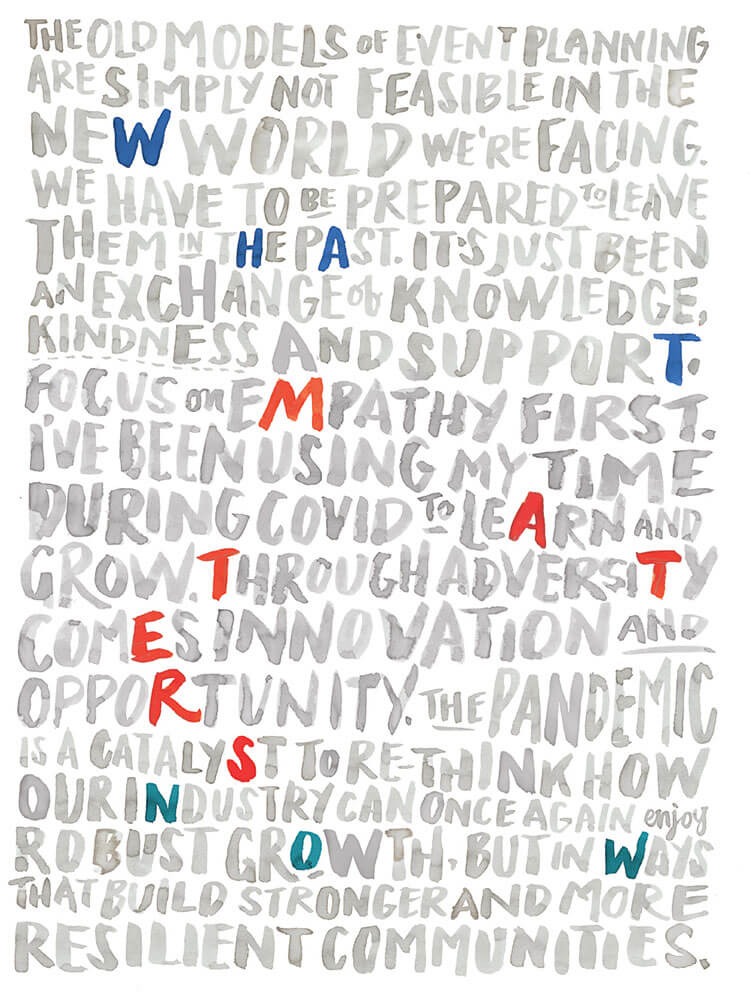 THE OLD MODELS OF EVENT PLANNING
ARE SIMPLY NOT FEASIBLE IN THE
NEW WORLD WE'RE FACING.
WE HAVE TO BE PREPARED TO LEAVE
THEM IN THE PAST. IT'S JUST BEEN
AN EXCHANGE of KNOWLEDGE,
KINDNESS AND SUPPORT.
FOCUS on EMPATHY FIRST.
I'VE BEEN USING MY TIME
DURING COVID TO LEARN AND
GROW. THROUGH ADVERSITY
COMES INNOVATION AND
OPPORTUNITY. THE PANDEMIC
IS A CATALYST TO RE-THINK HOW
OUR INDUSTRY CAN ONCE AGAIN enjoy
ROBUST GROWTH, BUT IN WAYS
THAT BUILD STRONGER AND MORE
RESILIENT COMMUNITIES.